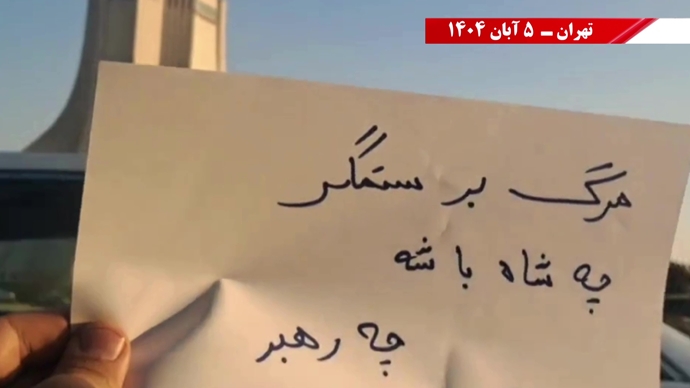 تهران ـ ۵ آبان ۱۴۰۴
مرگ بر ستمگر
چه شاه باشه
چه رهبر